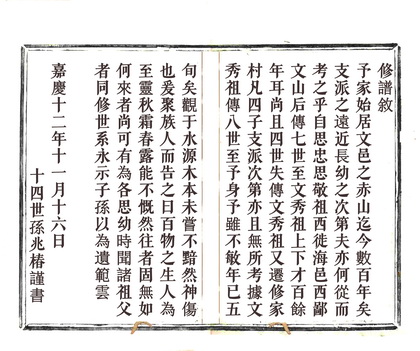 修譜敘
予家始居文邑之赤山迄今數百年矣
支派之遠近長幼之次第夫亦何從而
考之乎自思忠思敬祖西徒海邑西鄙
文山后傳七世至文秀祖上下才百餘
年耳尚且四世失傳文秀祖又遷修家
村凡四子支派次第亦且無所考據文
秀祖傳八世至予身予雖不敏年已五
旬矣觀于水源木本未嘗不黯然神傷
也爰聚族人而告之曰百物之生人為
至靈秋霜春露能不慨然往者固無如
何來者尚可有為各思幼時聞諸祖父
者同修世系永示子孫以為遺範雲
嘉慶十二年十一月十六日
十四世孫兆椿謹書